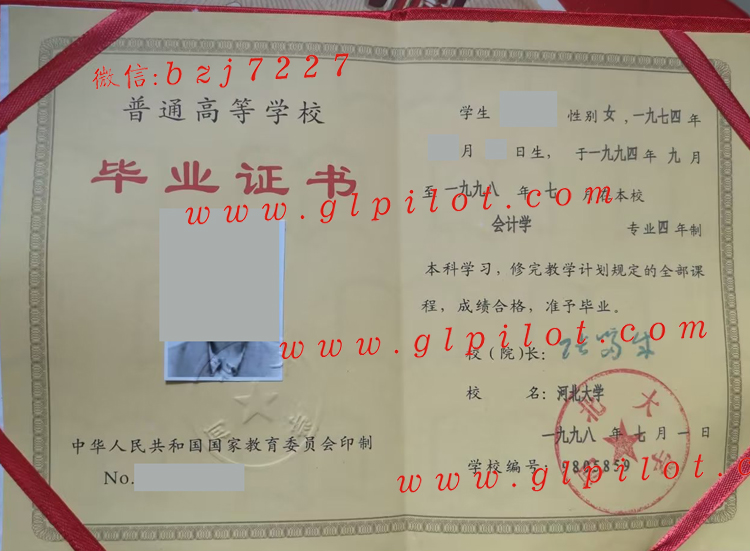 微信:bzj7227
普通高等学校
毕业证书
中华人民共和国国家教育委员会印制
No.
学生 性别 女 ,一九七四 年
月 日生, 于一九九四 年 九 月
至 一九九八 年 七 月在本校
www.glpilot.com
会计学 专业 四 年制
本科学习, 修完教学计划规定的全部课
程, 成绩合格, 准予毕业。
www.glpilot.com
校(院)长:
校 名: 河北大学
河北大学
一九九八 年 七 月 一 日
学校编号: 9805859
www.glpilot.c